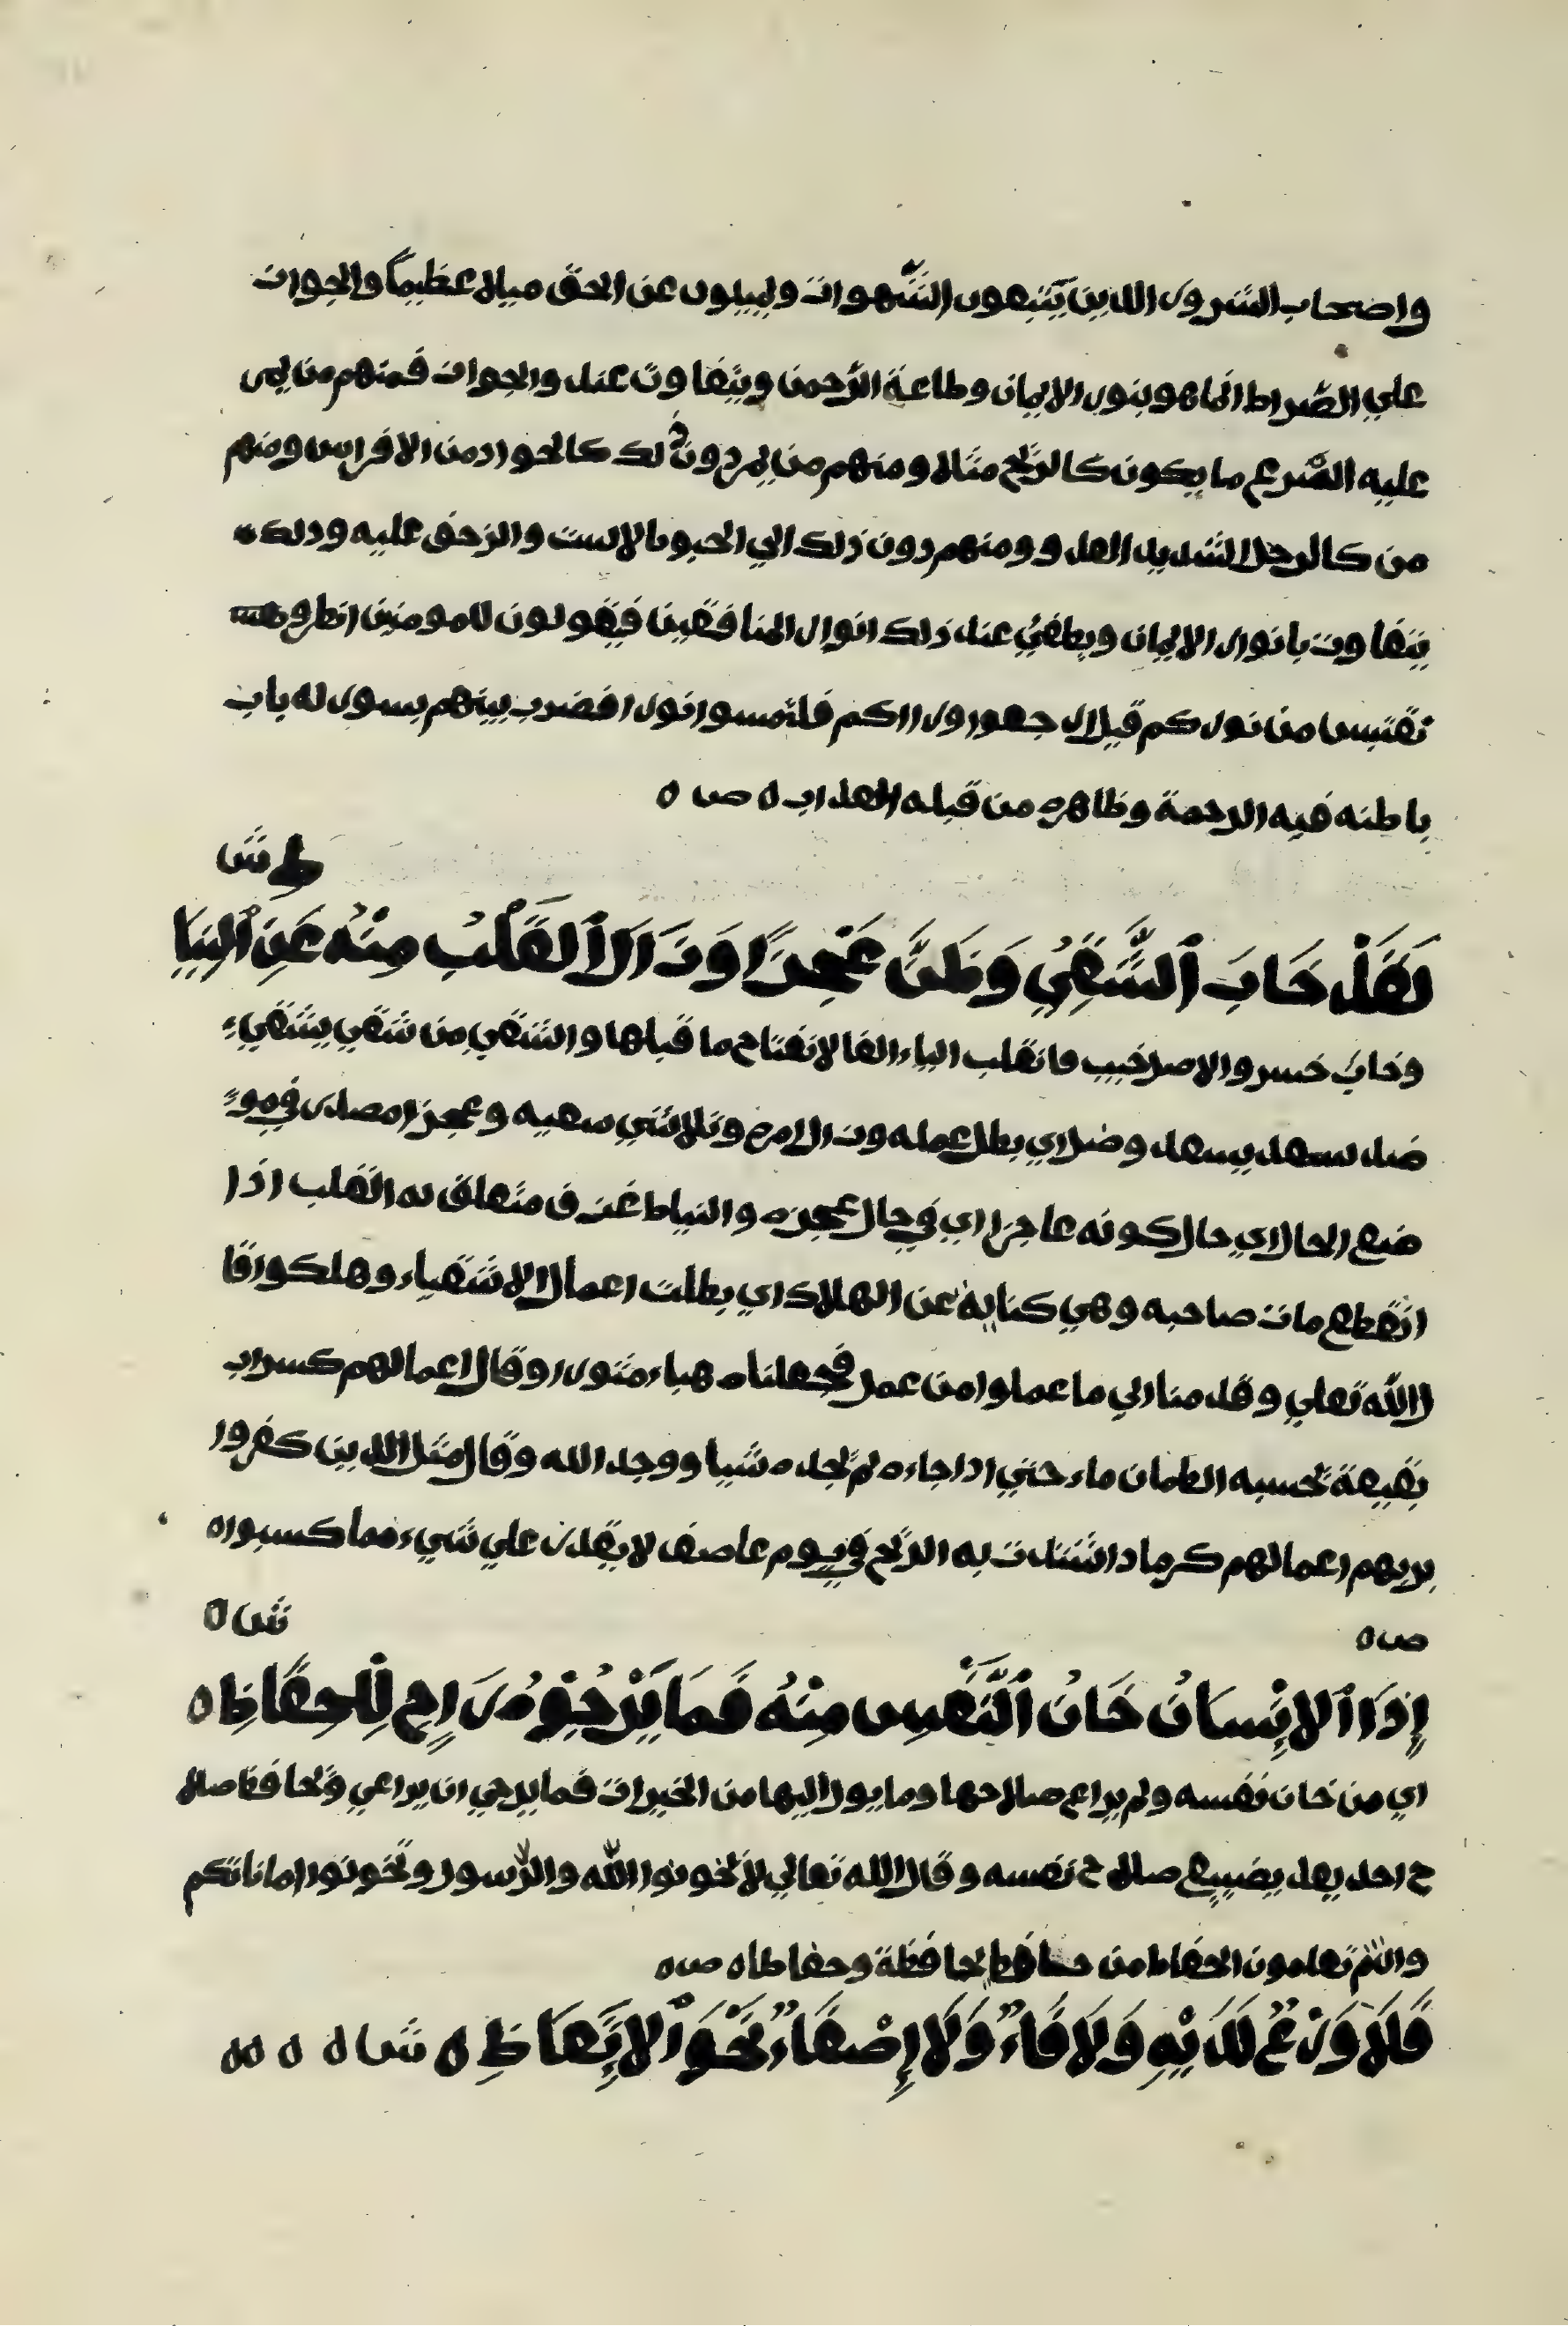 واصحاب الشرور الذين يتبعون الشهوات ويميلون عن الحق ميلا عظيماً والجوان
علي الصراط انما هو بنور الايمان وطاعة الرّحمن ويتفاوت عند والجوان فمنهم من يمر
عليه اسرع ما يكون كالريح مثلا ومنهم من يمر دون ذلك كالجواد من الافراس ومنهم
من كالرجل الشديد العدو ومنهم دون ذلك الي الحبو بالاست والزحف عليه وذلك
يتفاوت بانوار الايمان ويطفيُ عند ذلك انوار المنافقين فيقولون للمومنين انظرونا
نقتبس من نوركم قيل ارجعوا وراكم فلتمسوا نورا فضرب بينهم بسور له باب
باطنه فيه الرحمة وظاهره من قبله العذاب ه ص ه
ط ش
لَقَدْ خَابَ ٱلشَّقِيُ وَظَنَّ عَجْزًا وَزَالَ ٱلقَلْبُ مِنْهُ عَنِ ٱلنِيَا
وخاب خسر والاصل خيب فانقلب الياء الفا لانفتاح ما قبلها والشقي من شقي يشقيء
ضد سعد يسعد وضل اي بطل عمله وزال امره وتلاشي سعيه وعجزا مصدر في موء
ضع الحال اي حال كونه عاجزا اي في حال عجزه والنياط عرق متعلق به القلب اذا
انقطع مات صاحبه وهي كناية عن الهلاك اي بطلت اعمال الاشقياء وهلكوا قا
ل الله تعلي وقدمنا الي ما عملوا من عمل فجعلناه هباء منثورا وقال اعمالهم كسراب
بقيعة يحسبه الظمان ماء حتي اذا جاءه لم يجده شيا ووجد الله وقال مثل الذين كفروا
بربهم اعمالهم كرماد اشتدت به الريح في يوم عاصف لا يقدر علي شيء مما كسبوا ه
ص ه ش ه
إِذَا ٱلاِنْسَانُ خَانَ ٱلنَّفْسَ مِنْهُ فَمَا يَرْجُوهُ رَاجٍ لِلْحِفَاظِ ه
اي من خان نفسه ولم يراع صلاحها وما يول اليها من الخيرات فما يرجي ان يراعي ويحافظ صلا
ح احد بعد يضييع صلاح نفسه وقال الله تعالي لا تخونوا الله والرّسول وتخونوا اماناتكم
وانتم تعلمون الحفاظ من حافظ يحافظة وحفاظا ه ص ه
فَلَا وَرَعٌ لَدَيْهِ وَلَا وَفَاءٌ وَلَا إِصْغَاءٌ نَحْوَ ٱلاِتِّعَاظِ ه ش ه ه ه ه